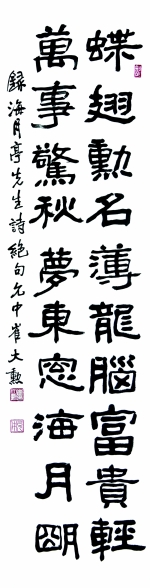 蝶翅勳名薄龍腦富貴輕
萬事驚秋夢東窓海月明
錄海月亭先生詩絶句允中崔大勲